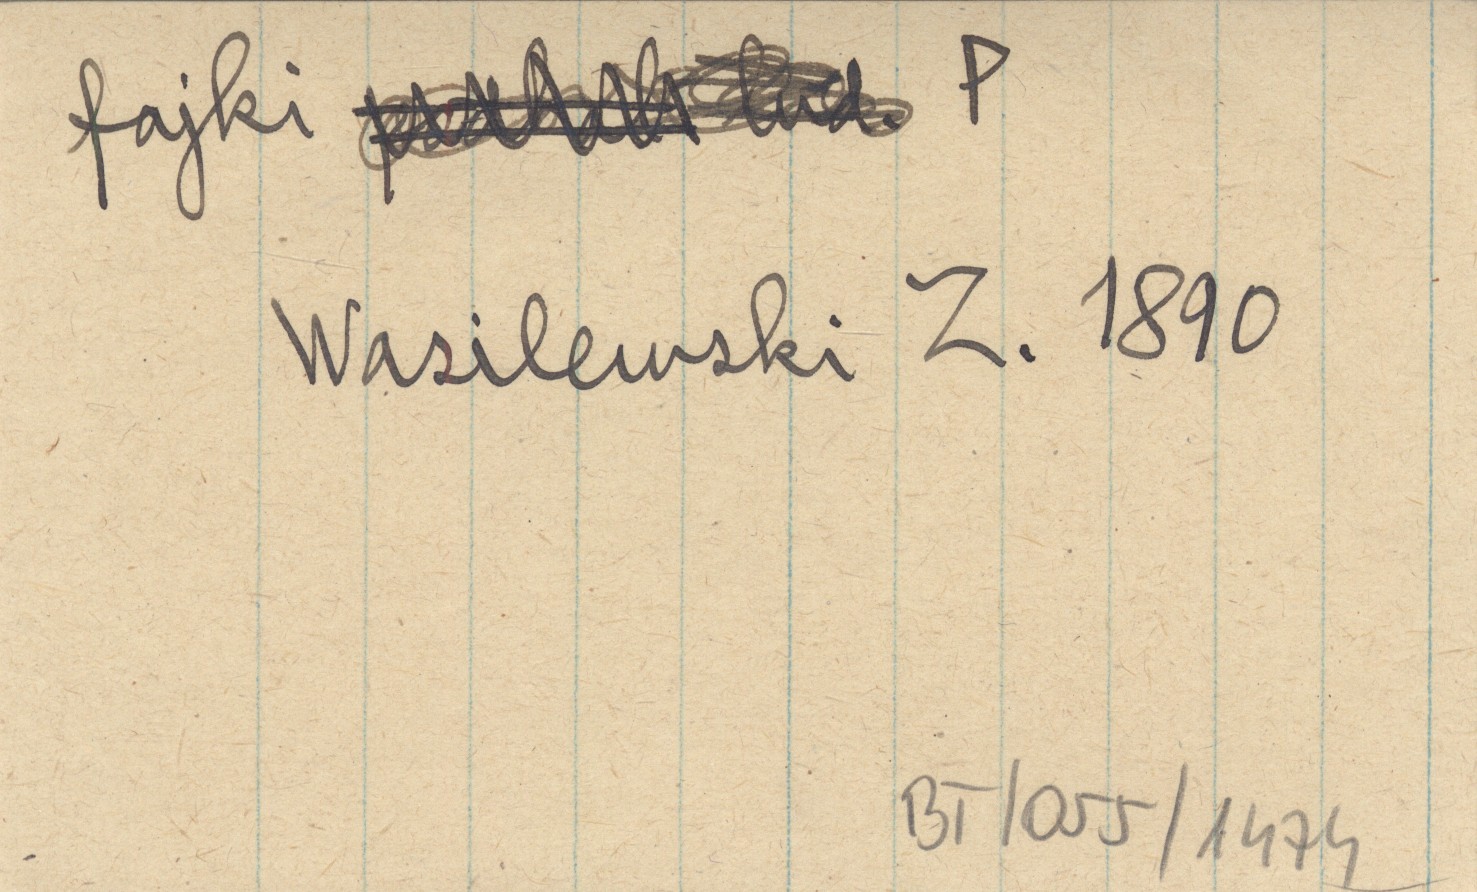 fajki lud. P
Wasilewski Z. 1890
BT/055/1474